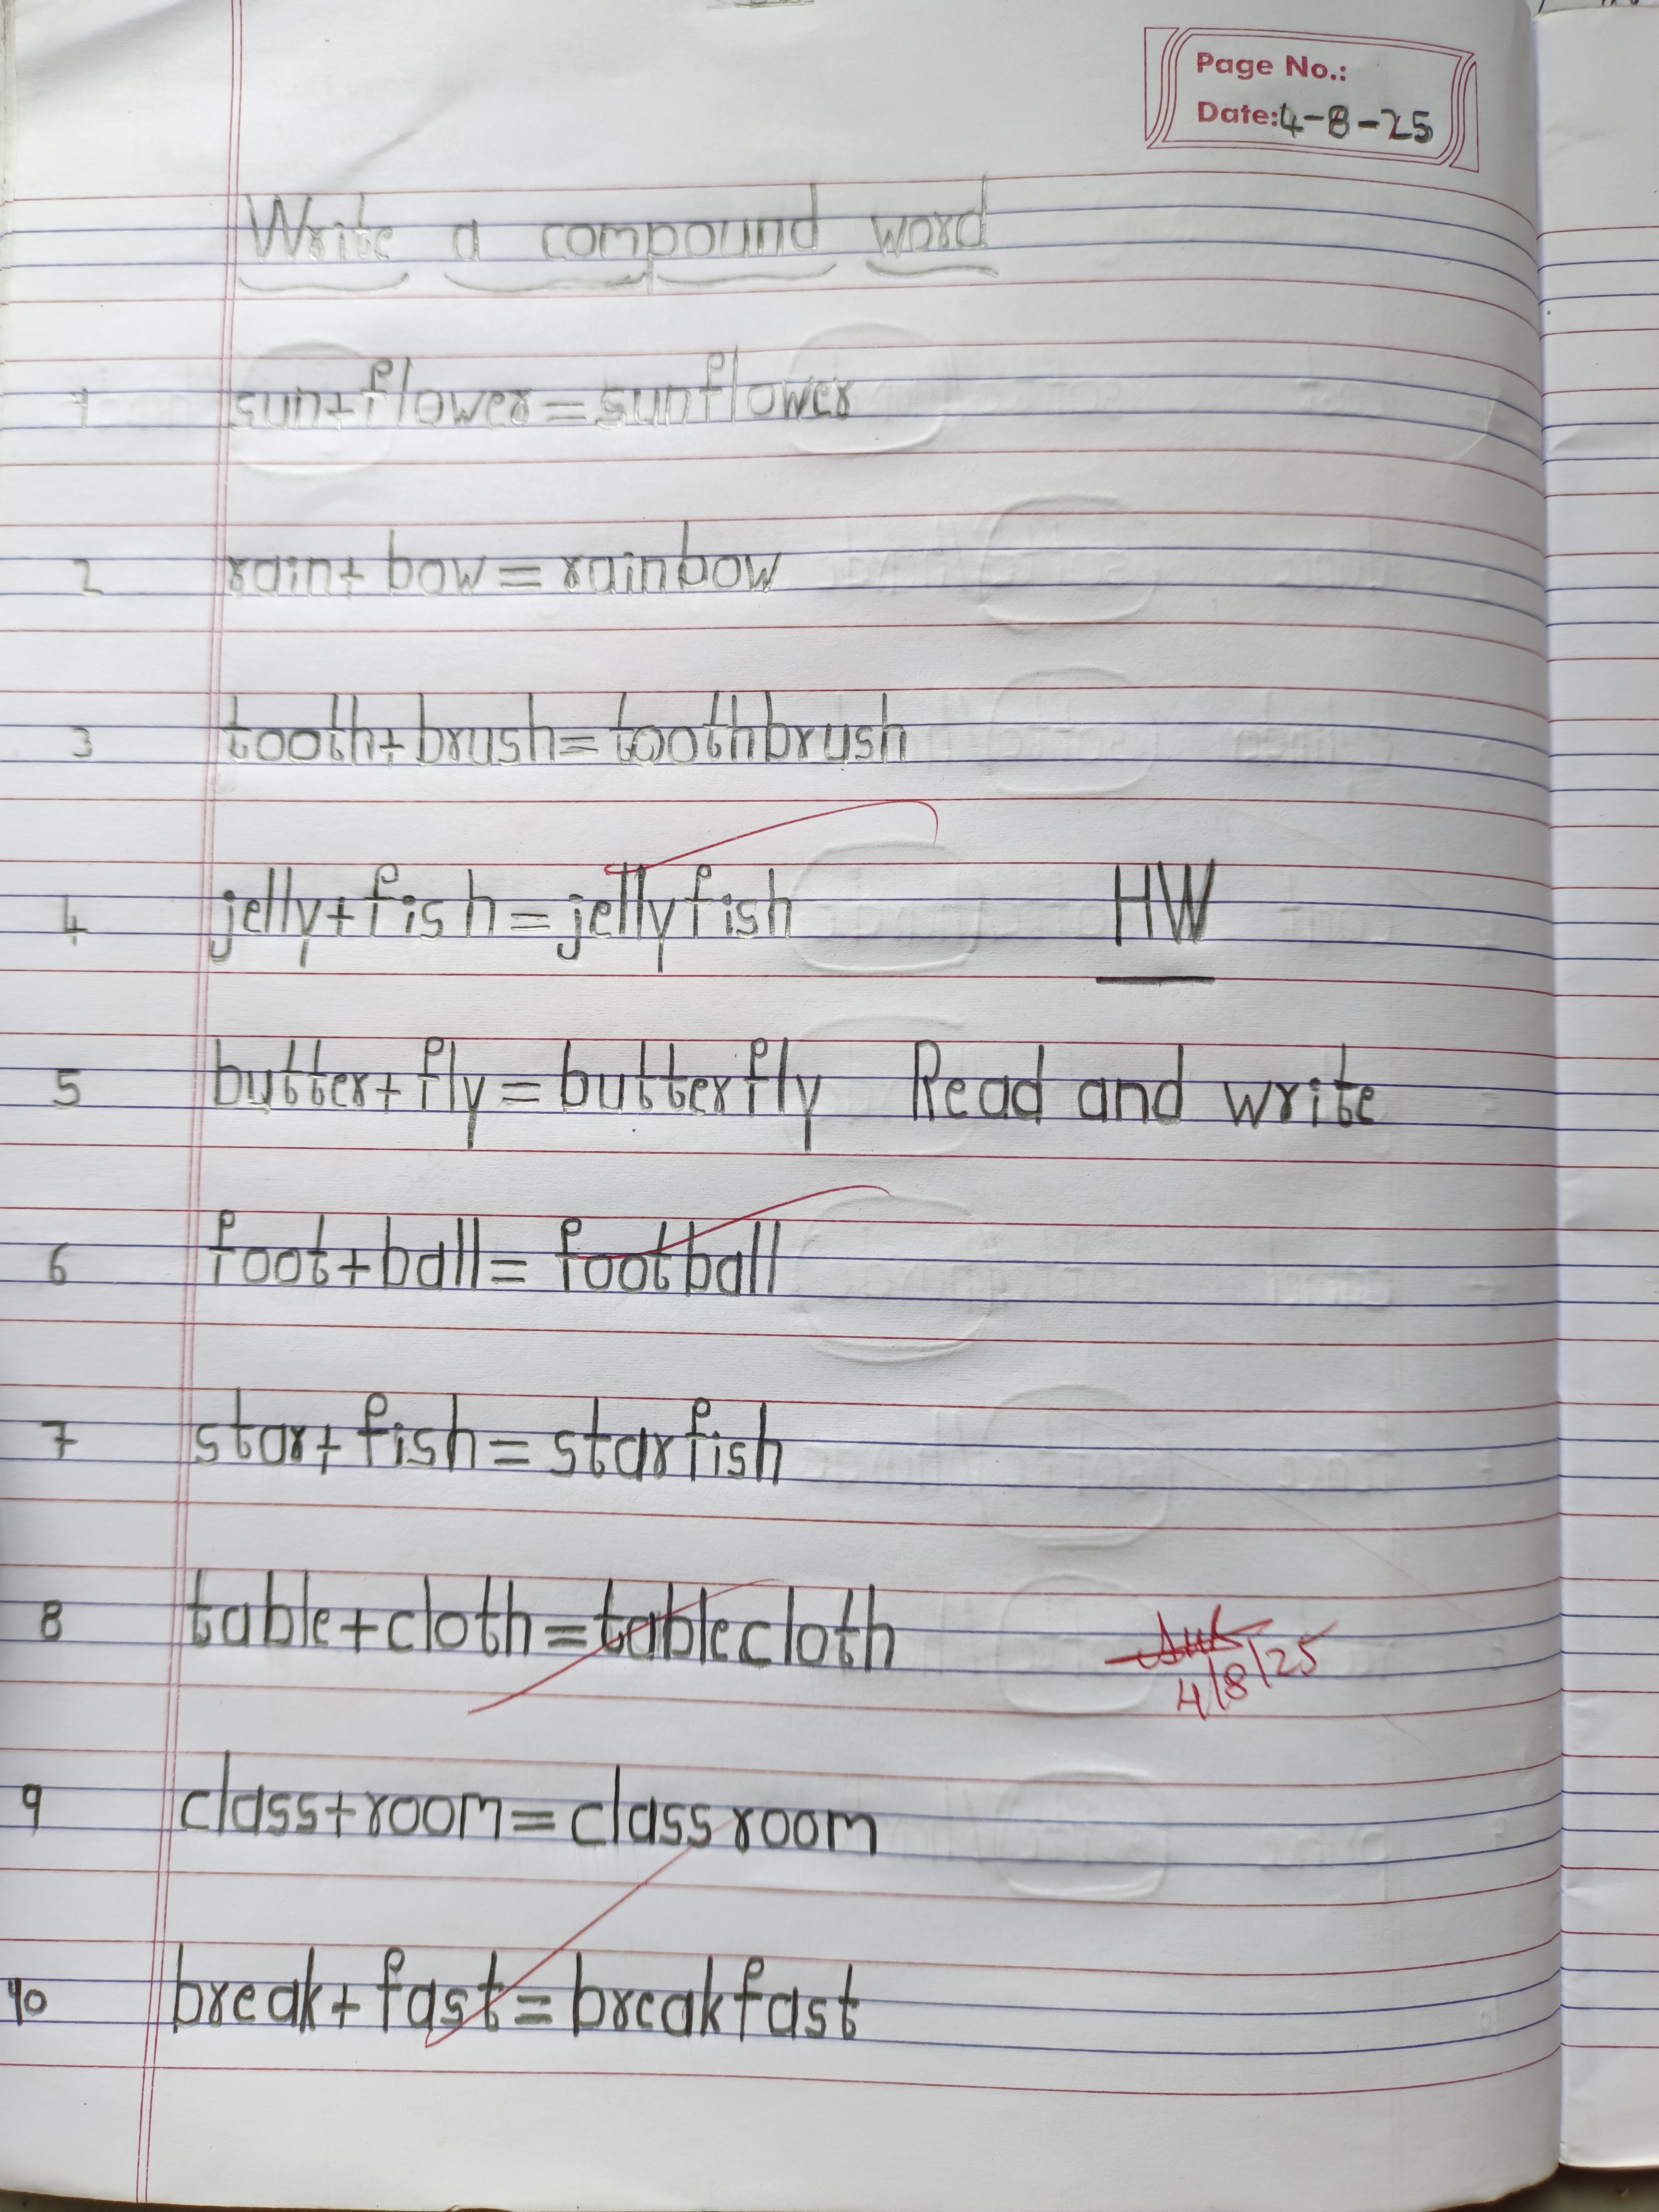 Page No.:
Date: 4-8-25
Write a compound word
1 sun+flower=sunflower
2 rain+bow=rainbow
3 tooth+brush=toothbrush
4 jelly+fish=jellyfish
HW
5 butter+fly=butterfly Read and write
6 foot+ball=football
7 star+fish=starfish
8 table+cloth=tablecloth
4/8/25
9 class+room=classroom
10 break+fast=breakfast